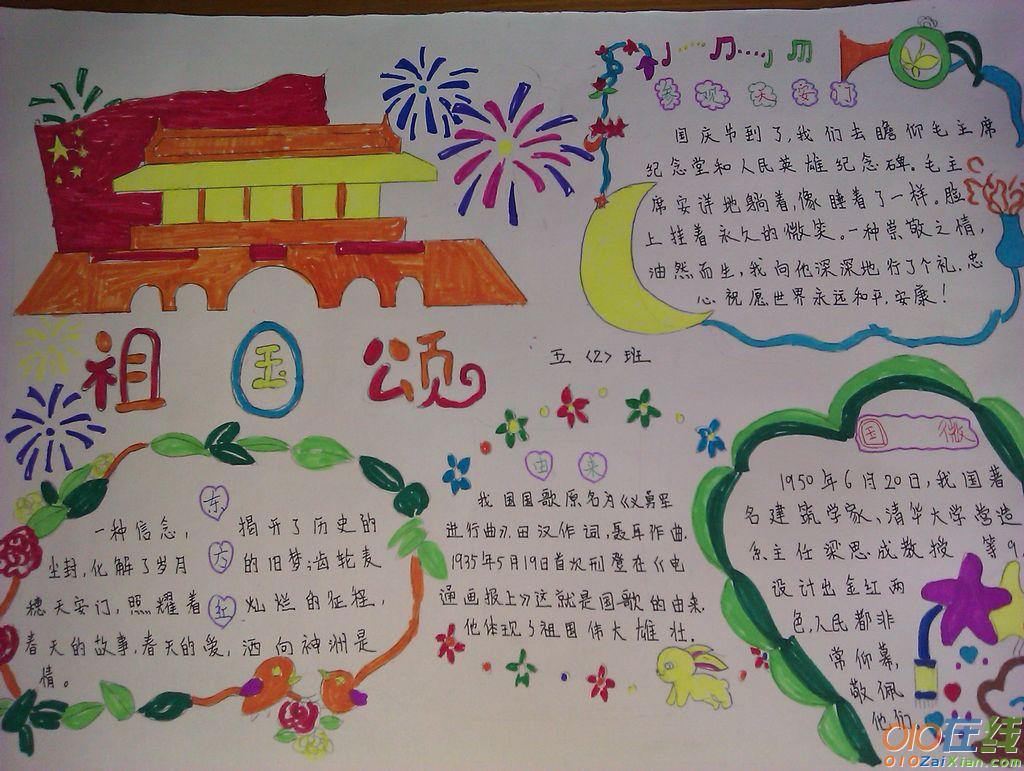 参观天安门
国庆节到了,我们去瞻仰毛主席
纪念堂和人民英雄纪念碑。毛主
席安详地躺着,像睡着了一样。脸
上挂着永久的微笑。一种崇敬之情,
油然而生,我向他深深地行了个礼.忠
心祝愿世界永远和平.安康!
祖国颂
五〈2〉班
东方红
一种信念,揭开了历史的
尘封,化解了岁月的旧梦;齿轮麦
穗天安门,照耀着灿烂的征程,
春天的故事.春天的爱,洒向神洲是
情。
由来
我国国歌原名为《义勇军
进行曲》.田汉作词,聂耳作曲.
1935年5月19日首次刑登在《电
通画报上》这就是国歌的由来.
他体现了祖国伟大雄壮.
国微
1950年6月20日,我国著
名建筑学家、清华大学营造
系主任梁思成教授等9
设计出金红两
色,人民都非
常仰幕,
敬佩
他们.
010在线
010ZaiXian.com